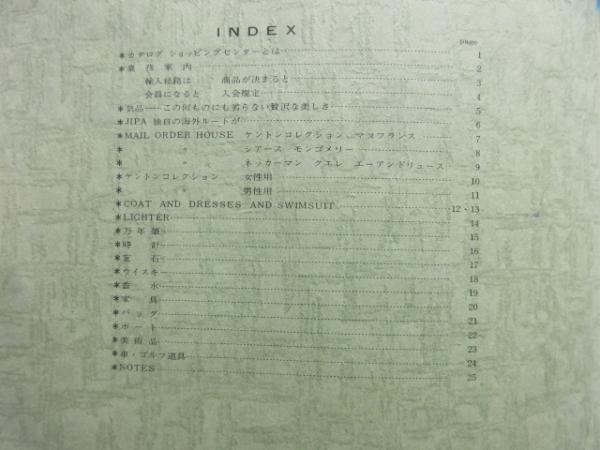 INDEX
page
*カタログ ショッピングセンターとは 1
*業 務 案 内 2
輸入経路は 商品が決まると 3
会員になると 入会規定 4
*気品——この何ものにも劣らない贅沢な美しさ 5
*JIPA 独自の海外ルートが 6
*MAIL ORDER HOUSE ケントンコレクション マヌフランス 7
〃 シアーズ モンゴメリー 8
〃 ネッカーマン クエレ エーアンドリュース 9
*ケントンコレクション 女性用 10
〃 男性用 11
*COAT AND DRESSES AND SWIMSUIT 12・13
*LIGHTER 14
*万 年 筆 15
*時 計 16
*宝 石 17
*ウイスキー 18
*香 水 19
*家 具 20
*バッグ 21
*ボート 22
*美 術 品 23
*車・ゴルフ道具 24
*NOTES 25